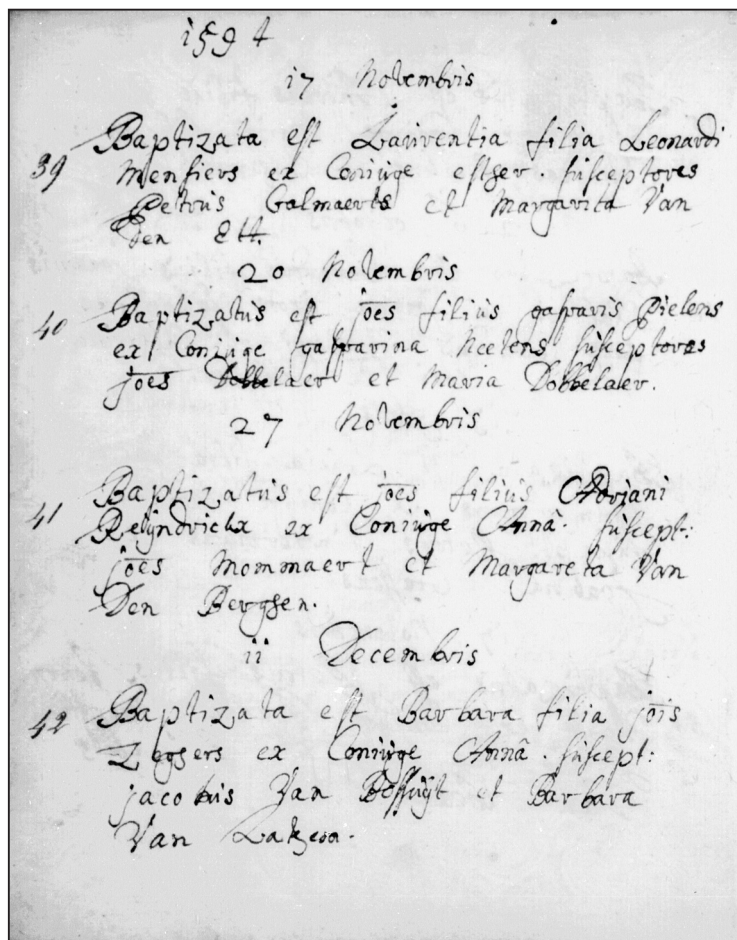 1594
17 Novembris
Baptizata est Laurentia filia Leonardi
39 Mensiers ex Coniuge esther. susceptores
Petrus Galmaerts et Margarita Van
Den Ett.
20 Novembris
40 Baptizatus est joēs filius gasparis Pielens
ex Coniuge gasparina Neelens susceptores
joēs Dobbelaer et Maria Dobbelaer.
27 Novembris
Baptizatus est joēs filius Adriani
41 Reijndrickx ex Coniuge Annâ. suscept:
joēs Mommaert et Margareta Van
Den Berghen.
ii Decembris
42 Baptizata est Barbara filia jōis
Zeghers ex Coniuge Annâ. suscept:
jacobus Van et Barbara
Van